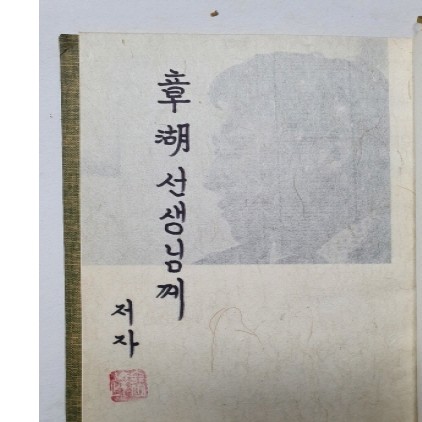 章湖 선생님께
저자